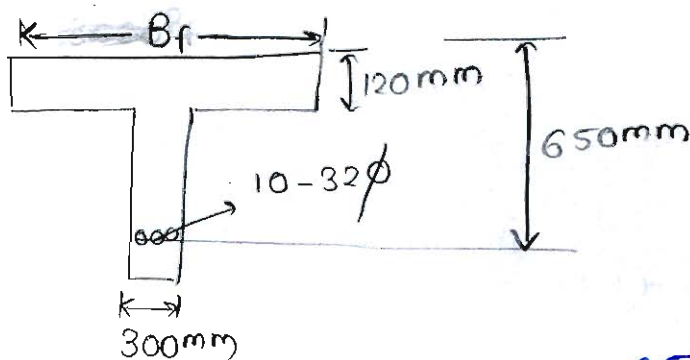 Bf
120mm
650mm
10-32ϕ
300mm